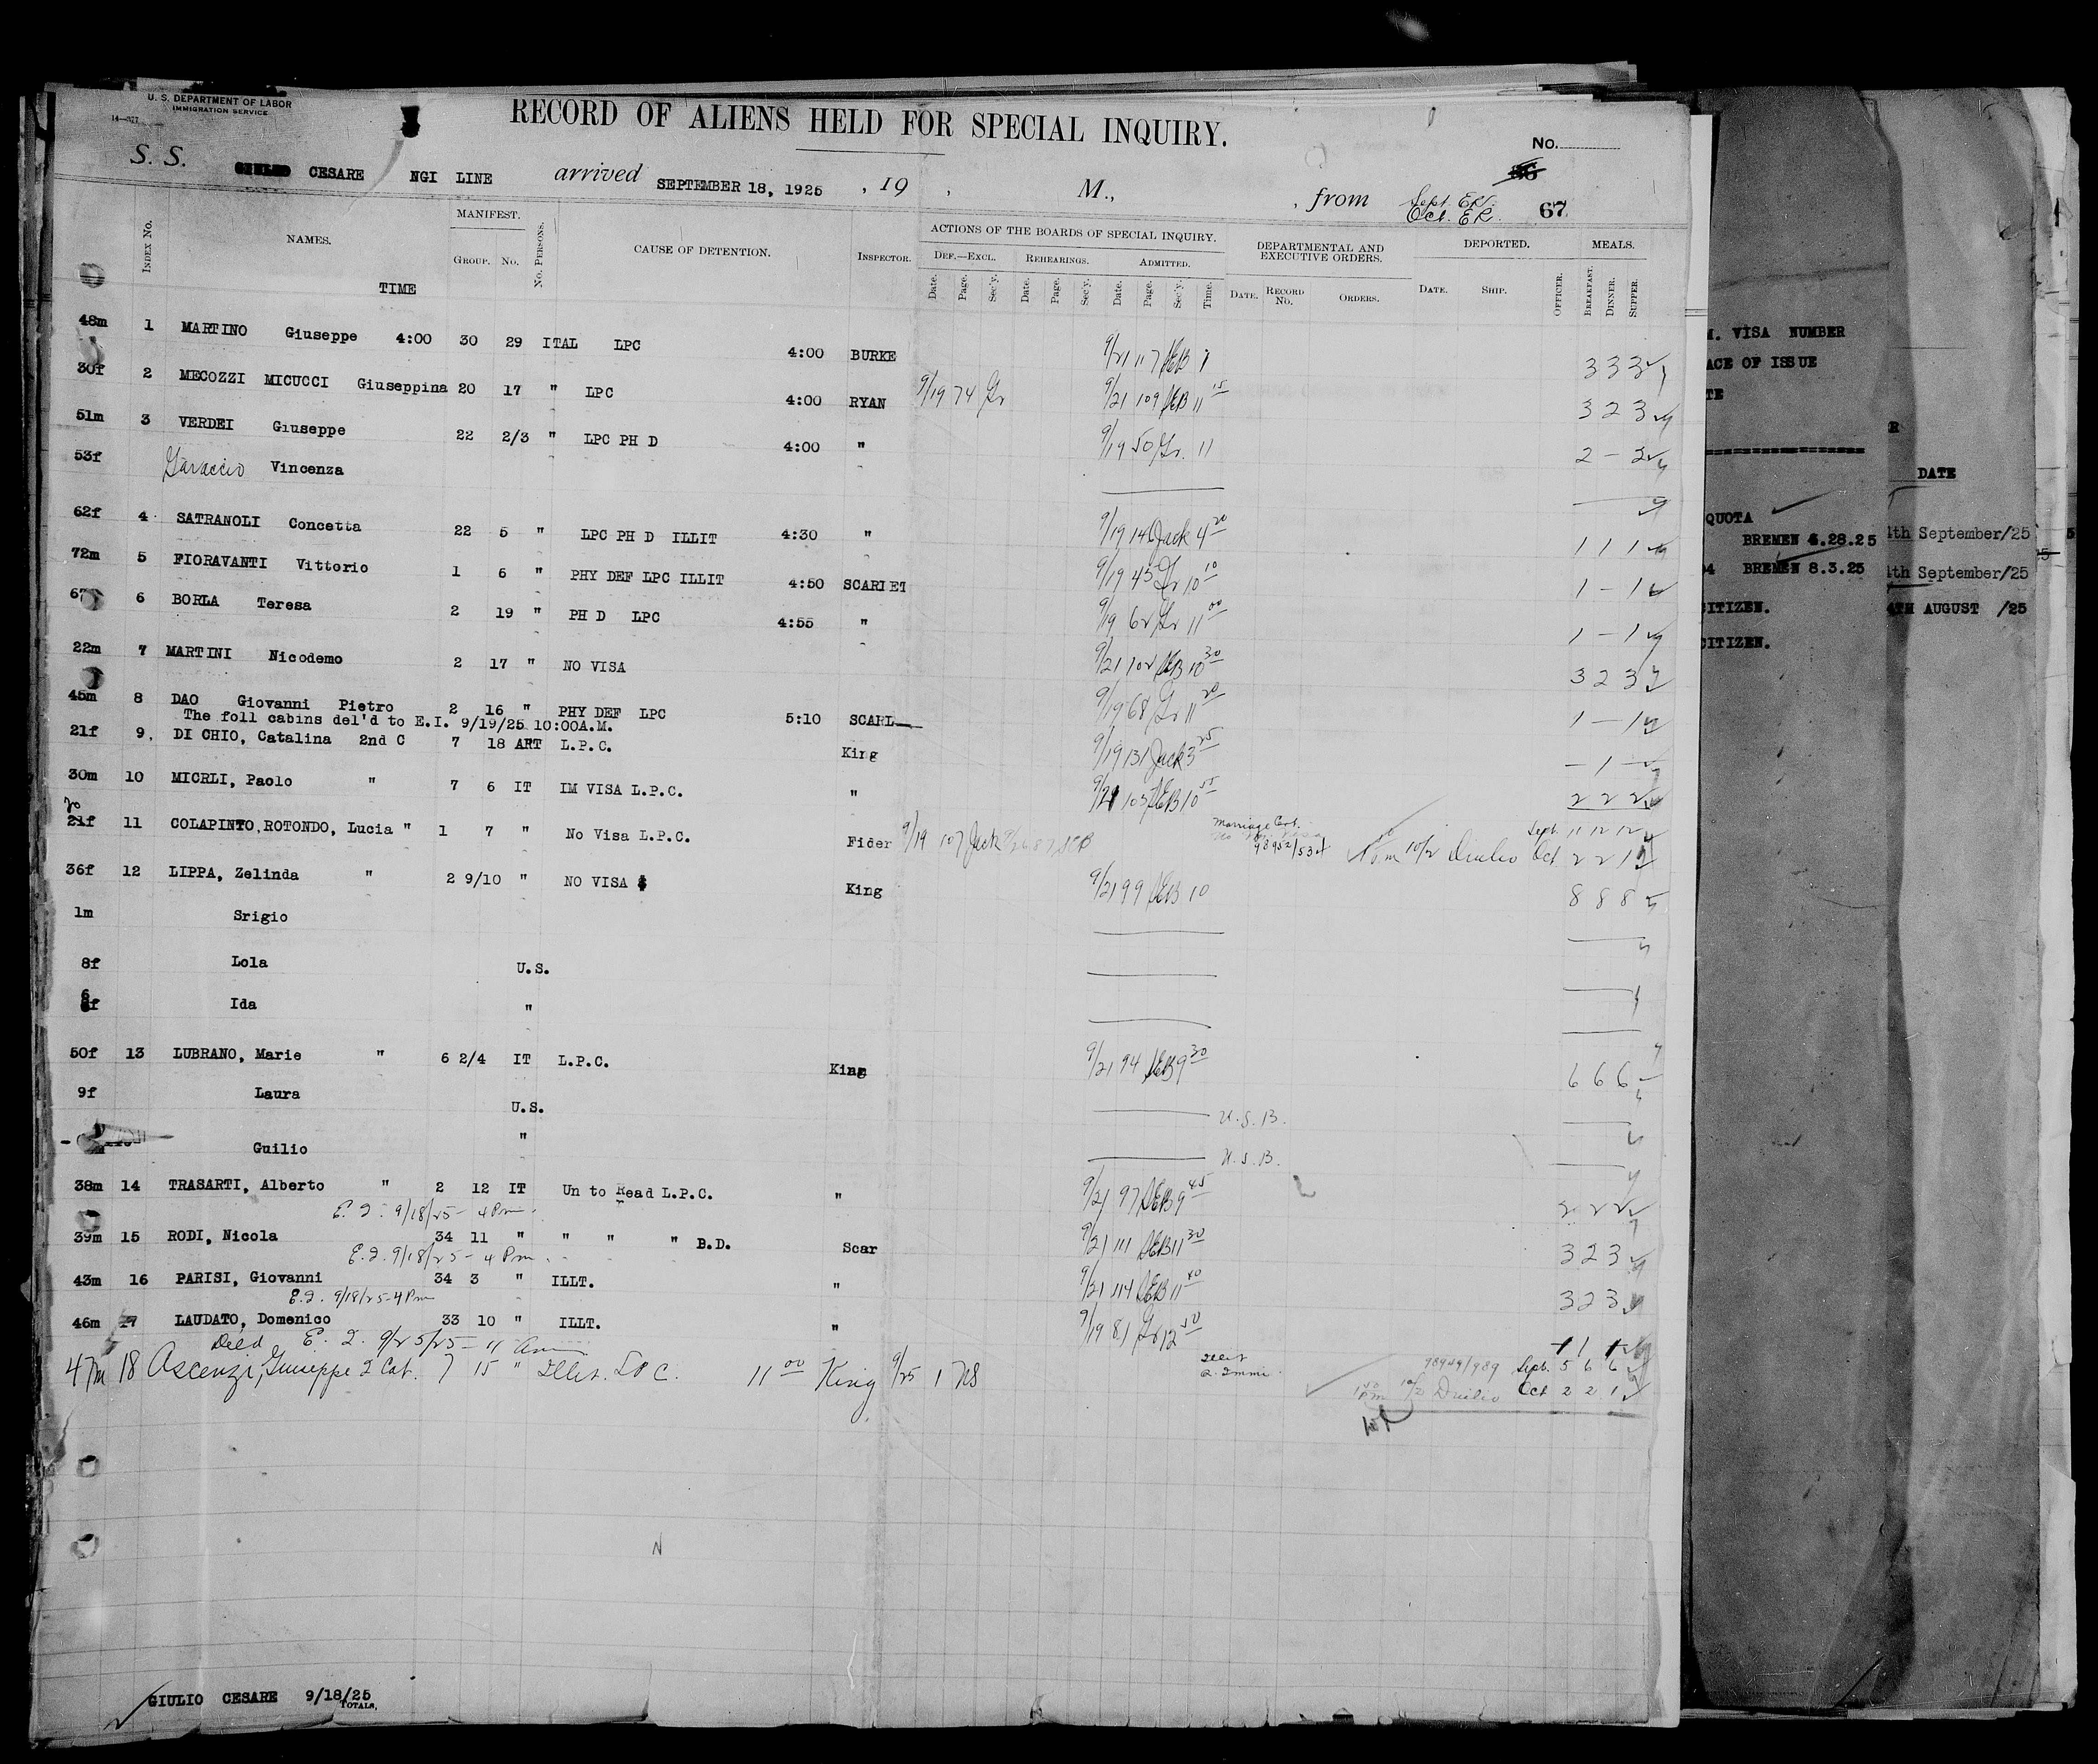 U. S. DEPARTMENT OF LABOR
IMMIGRATION SERVICE
RECORD OF ALIENS HELD FOR SPECIAL INQUIRY.
No.
S. S. CESARE NGI LINE arrived SEPTEMBER 18, 1925 , 19 , M., , from Sept. ER. Oct. ER. 67
Index No. NAMES. MANIFEST. Group. No. No. Persons. CAUSE OF DETENTION. Inspector. ACTIONS OF THE BOARDS OF SPECIAL INQUIRY. DEPARTMENTAL AND EXECUTIVE ORDERS. DEPORTED. MEALS.
Def.—Excl. Rehearings. Admitted.
Date. Page. Sec'y. Date. Page. Sec'y. Date. Page. Sec'y. Time. Date. Record No. Orders. Date. Ship. Officer. Breakfast. Dinner. Supper.
TIME
48m 1 MARTINO Giuseppe 4:00 30 29 ITAL LPC 4:00 BURKE 9/21 117 SEB 1 3 3 3
30f 2 MECOZZI MICUCCI Giuseppina 20 17 " LPC 4:00 RYAN 9/19 74 Gr 9/21 109 SEB 11 15 3 2 3
51m 3 VERDEI Giuseppe 22 2/3 " LPC PH D 4:00 " 9/19 50 Gr. 11 2 - 2
53f Garaccio Vincenza
62f 4 SATRANOLI Concetta 22 5 " LPC PH D ILLIT 4:30 " 9/19 146 Jack 4 20 1 1 1
72m 5 FIORAVANTI Vittorio 1 6 " PHY DEF LPC ILLIT 4:50 SCARLET 9/19 45 Gr 10 10 1 - 1
6 BORLA Teresa 2 19 " PH D LPC 4:55 " 9/19 62 Gr 11 00 1 - 1
22m 7 MARTINI Nicodemo 2 17 " NO VISA 9/21 102 SEB 10 30 3 2 3
45m 8 DAO Giovanni Pietro 2 16 " PHY DEF LPC 5:10 SCARL 9/19 68 Gr 11 20 1 - 1
The foll cabins del'd to E.I. 9/19/25 10:00A.M.
21f 9. DI CHIO, Catalina 2nd C 7 18 ART L.P.C. King 9/19 131 Jack 3 25 - 1 -
30m 10 MICRLI, Paolo " 7 6 IT IM VISA L.P.C. " 9/21 103 SEB 10 55 2 2 2
20
21f 11 COLAPINTO, ROTONDO, Lucia " 1 7 " No Visa L.P.C. Fider 9/19 107 Jack Marriage Cert. 98952/534 Noon 10/2 Duilio Sept. 11 12 12 Oct 2 2 1
36f 12 LIPPA, Zelinda " 2 9/10 " NO VISA King 9/21 99 SEB 10 8 8 8
1m Srigio
8f Lola U.S.
6f Ida "
50f 13 LUBRANO, Marie " 6 2/4 IT L.P.C. King 9/21 94 SEB 9 30 6 6 6
9f Laura U.S. U.S.B.
Guilio " U.S.B.
38m 14 TRASARTI, Alberto " 2 12 IT Un to Read L.P.C. " 9/21 97 SEB 9 45 2 2 2
E.I. 9/18/25 - 4 Pm
39m 15 RODI, Nicola 34 11 " " " " B.D. Scar 9/21 111 SEB 11 30 3 2 3
E.I. 9/18/25 - 4 Pm.
43m 16 PARISI, Giovanni 34 3 " ILLT. " 9/21 114 SEB 11 40 3 2 3
E.I. 9/18/25-4Pm
46m 17 LAUDATO, Domenico 33 10 " ILLT. " 9/19 81 Gr 12 50 1 1 1
Deld E. I. 9/25/25 - 11 Am
47m 18 Ascenzi, Giuseppe 2 Cab. 7 15 " Illit. LPC. 11 00 King 9/25 1 NS Illit Q. Immi. 98949/989 Sept. 5 6 6
1 50 Pm 10/2 Duilio Oct 2 2 1
GIULIO CESARE 9/18/25
TOTALS.
M. VISA NUMBER
ACE OF ISSUE
TE
DATE
QUOTA
BREMEN 4.28.25
4 BREMEN 8.3.25
CITIZEN.
CITIZEN.
4th September/25
4th September/25
4TH AUGUST /25